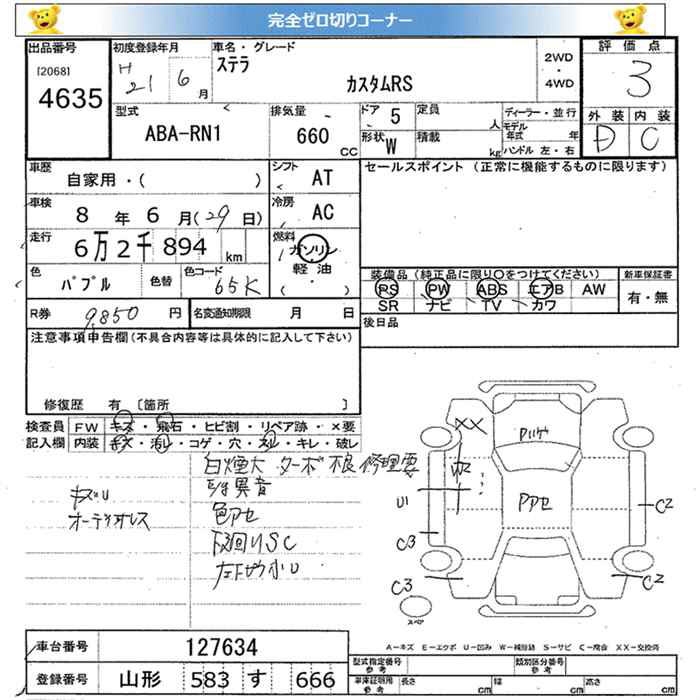 完全ゼロ切りコーナー
出品番号
[2068]
4635
初度登録年月
H 21 6月
車名・グレード
ステラ
カスタムRS
2WD
・
4WD
評価点
3
型式
ABA-RN1
排気量
660
CC
ドア 5
形状 W
定員
人
積載
kg
ディーラー・並行
モデル年式 年
ハンドル 左・右
外装 内装
D C
車歴
自家用・( )
シフト
AT
セールスポイント (正常に機能するものに限ります)
車検
8 年 6 月(29日)
冷房
AC
走行
6万2千894 km
燃料
ガソリン
軽油
( ・ )
色
パプル
色替
色コード
65K
装備品(純正品に限り○をつけてください)
新車保証書
PS PW ABS エアB AW
有・無
SR ナビ TV カワ
R券 9,850 円
名変通知期限 月 日
後日品
注意事項申告欄(不具合内容等は具体的に記入して下さい)
修復歴 有 [箇所 ]
検査員 FW キズ・飛石・ヒビ割・リペア跡・×要
記入欄 内装 キズ・汚レ・コゲ・穴・スレ・キレ・破レ
白煙大 ターボ不良 修理要
E/g異音
キズU
オーディオレス
色アセ
下回りSC
XX
U1
C3
C3
C2
C2
スペア
車台番号 127634
A-キズ E-エクボ U-凹み W-補修跡 S-サビ C-腐食 XX-交換済
登録番号 山形 583 す 666
型式指定番号
参考
類別区分番号
参考
車庫証明用
参考
長さ cm 幅 cm 高さ cm